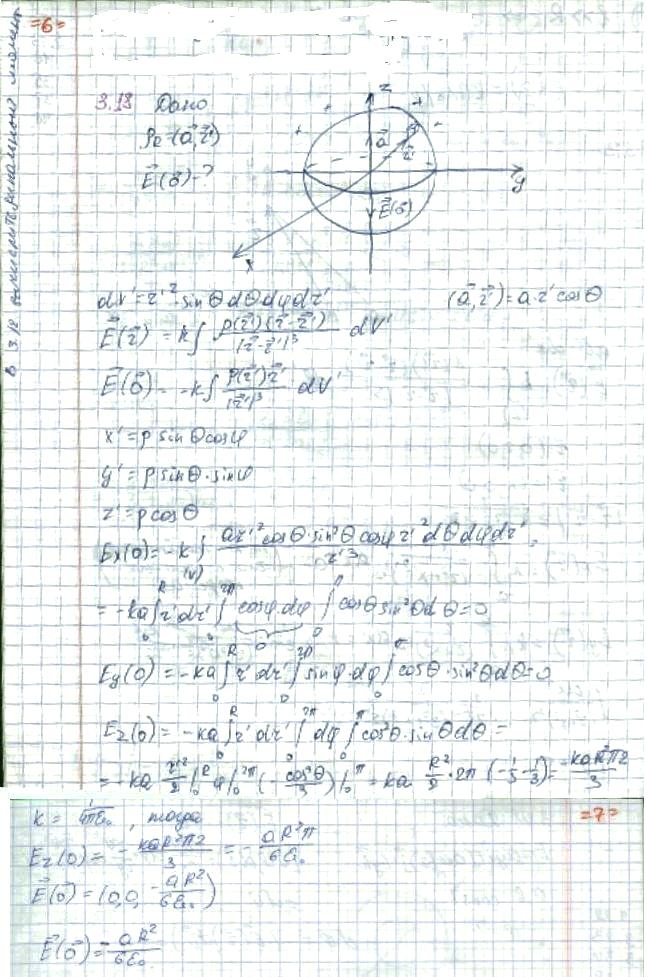 =6=
3.18 Дано
ρ = (a⃗, r⃗')
E⃗(0⃗) - ?
z
y
x
a⃗
r⃗'
E⃗(0⃗)
в 3.12
dV' = r'² sinθ dθ dφ dr'
(a⃗, r⃗') = a·r' cosθ
E⃗(r⃗) = k∫ ρ(r⃗')(r⃗-r⃗')/|r⃗-r⃗'|³ dV'
E⃗(0⃗) = -k∫ ρ(r⃗')r⃗'/|r⃗'|³ dV'
x' = ρ sinθ cosφ
y' = ρ sinθ·sinφ
z' = ρ cosθ
Ex(0) = -k ∫(V) ar'² cosθ·sin²θ cosφ r'² dθ dφ dr' / r'³ =
= -ka ∫₀ᴿ r'dr' ∫₀²ᵖⁱ cosφ dφ ∫₀ cosθ sin²θ dθ = 0
0
Ey(0) = -ka ∫₀ᴿ r'dr' ∫₀²ᵖⁱ sinφ dφ ∫₀ cosθ·sin²θ dθ = 0
Ez(0) = -ka ∫₀ᴿ r'dr' ∫₀²ᵖⁱ dφ ∫₀ᵖⁱ cos²θ·sinθ dθ =
= -ka r'²/2 |₀ᴿ φ|₀²ᵖⁱ (-cos³θ/3)|₀ᵖⁱ = ka R²/2 · 2π (-1/3 - 1/3) = -kaR²π2/3
=7=
k = 1/4πε₀, тогда
Ez(0) = -kaR²π2/3 = -aR²π/6ε₀
E⃗(0⃗) = (0, 0, -aR²/6ε₀)
E⃗(0⃗) = -aR²/6ε₀